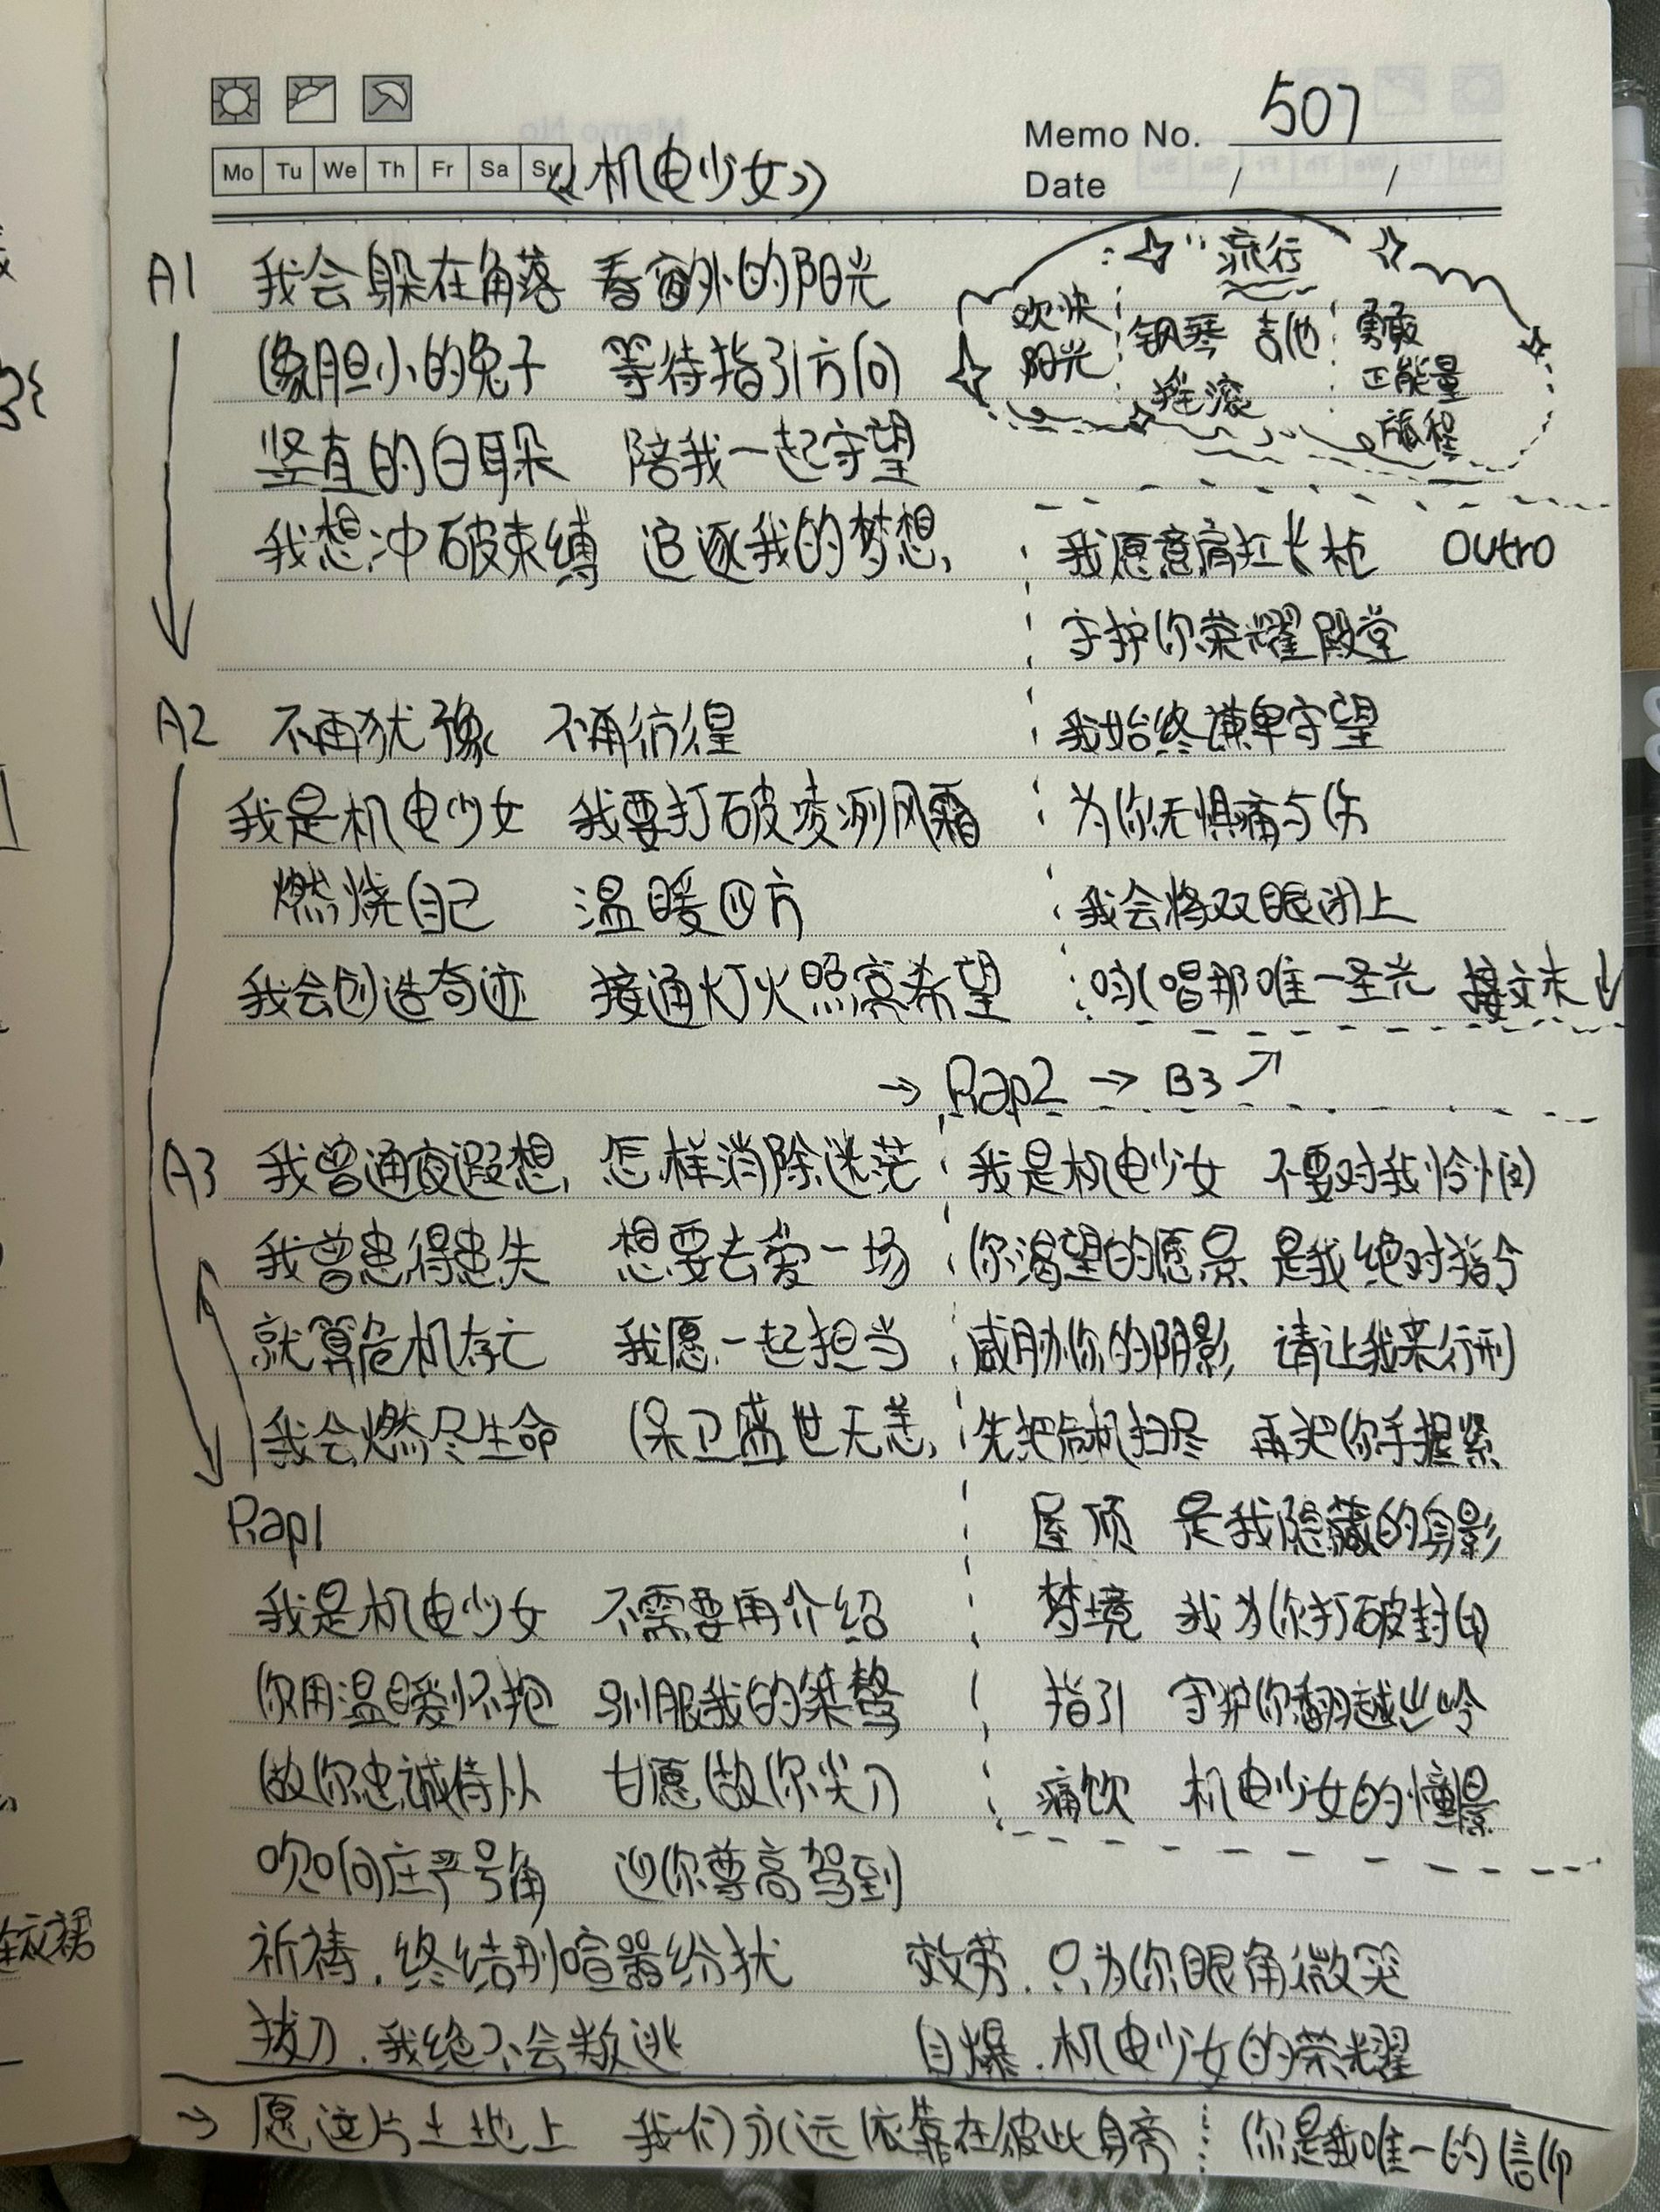 Mo Tu We Th Fr Sa Su
《机电少女》
Memo No. 507
Date / /
流行
欢快 阳光
钢琴 吉他 摇滚
勇敢 正能量 旅程
A1 我会躲在角落 看窗外的阳光
像胆小的兔子 等待指引方向
竖直的白耳朵 陪我一起守望
我想冲破束缚 追逐我的梦想,
A2 不再犹豫 不再彷徨
我是机电少女 我要打破凌冽风霜
燃烧自己 温暖四方
我会创造奇迹 接通灯火照亮希望
A3 我曾通夜遐想, 怎样消除迷茫
我曾患得患失 想要去爱一场
就算危机存亡 我愿一起担当
我会燃尽生命 保卫盛世无恙,
Rap1
我是机电少女 不需要再介绍
你用温暖怀抱 驯服我的桀骜
做你忠诚侍从 甘愿做你尖刀
吹响庄严号角 迎你尊高驾到
祈祷.终结别喧嚣纷扰 效劳.只为你眼角微笑
拔刀.我绝不会叛逃 自爆.机电少女的荣耀
我愿意肩扛长枪 Outro
守护你荣耀殿堂
我始终谦卑守望
为你无惧痛与伤
我会将双眼闭上
吟唱那唯一圣光 接文末↓
→ Rap2 → B3 ↗
我是机电少女 不要对我怜悯
你渴望的愿景 是我绝对指令
威胁你的阴影 请让我来行刑
先把危机扫尽 再把你手握紧
屋顶 是我隐藏的身影
梦境 我为你打破封印
指引 守护你翻越山岭
痛饮 机电少女的憧憬
→ 愿这片土地上 我们永远依靠在彼此身旁 你是我唯一的信仰